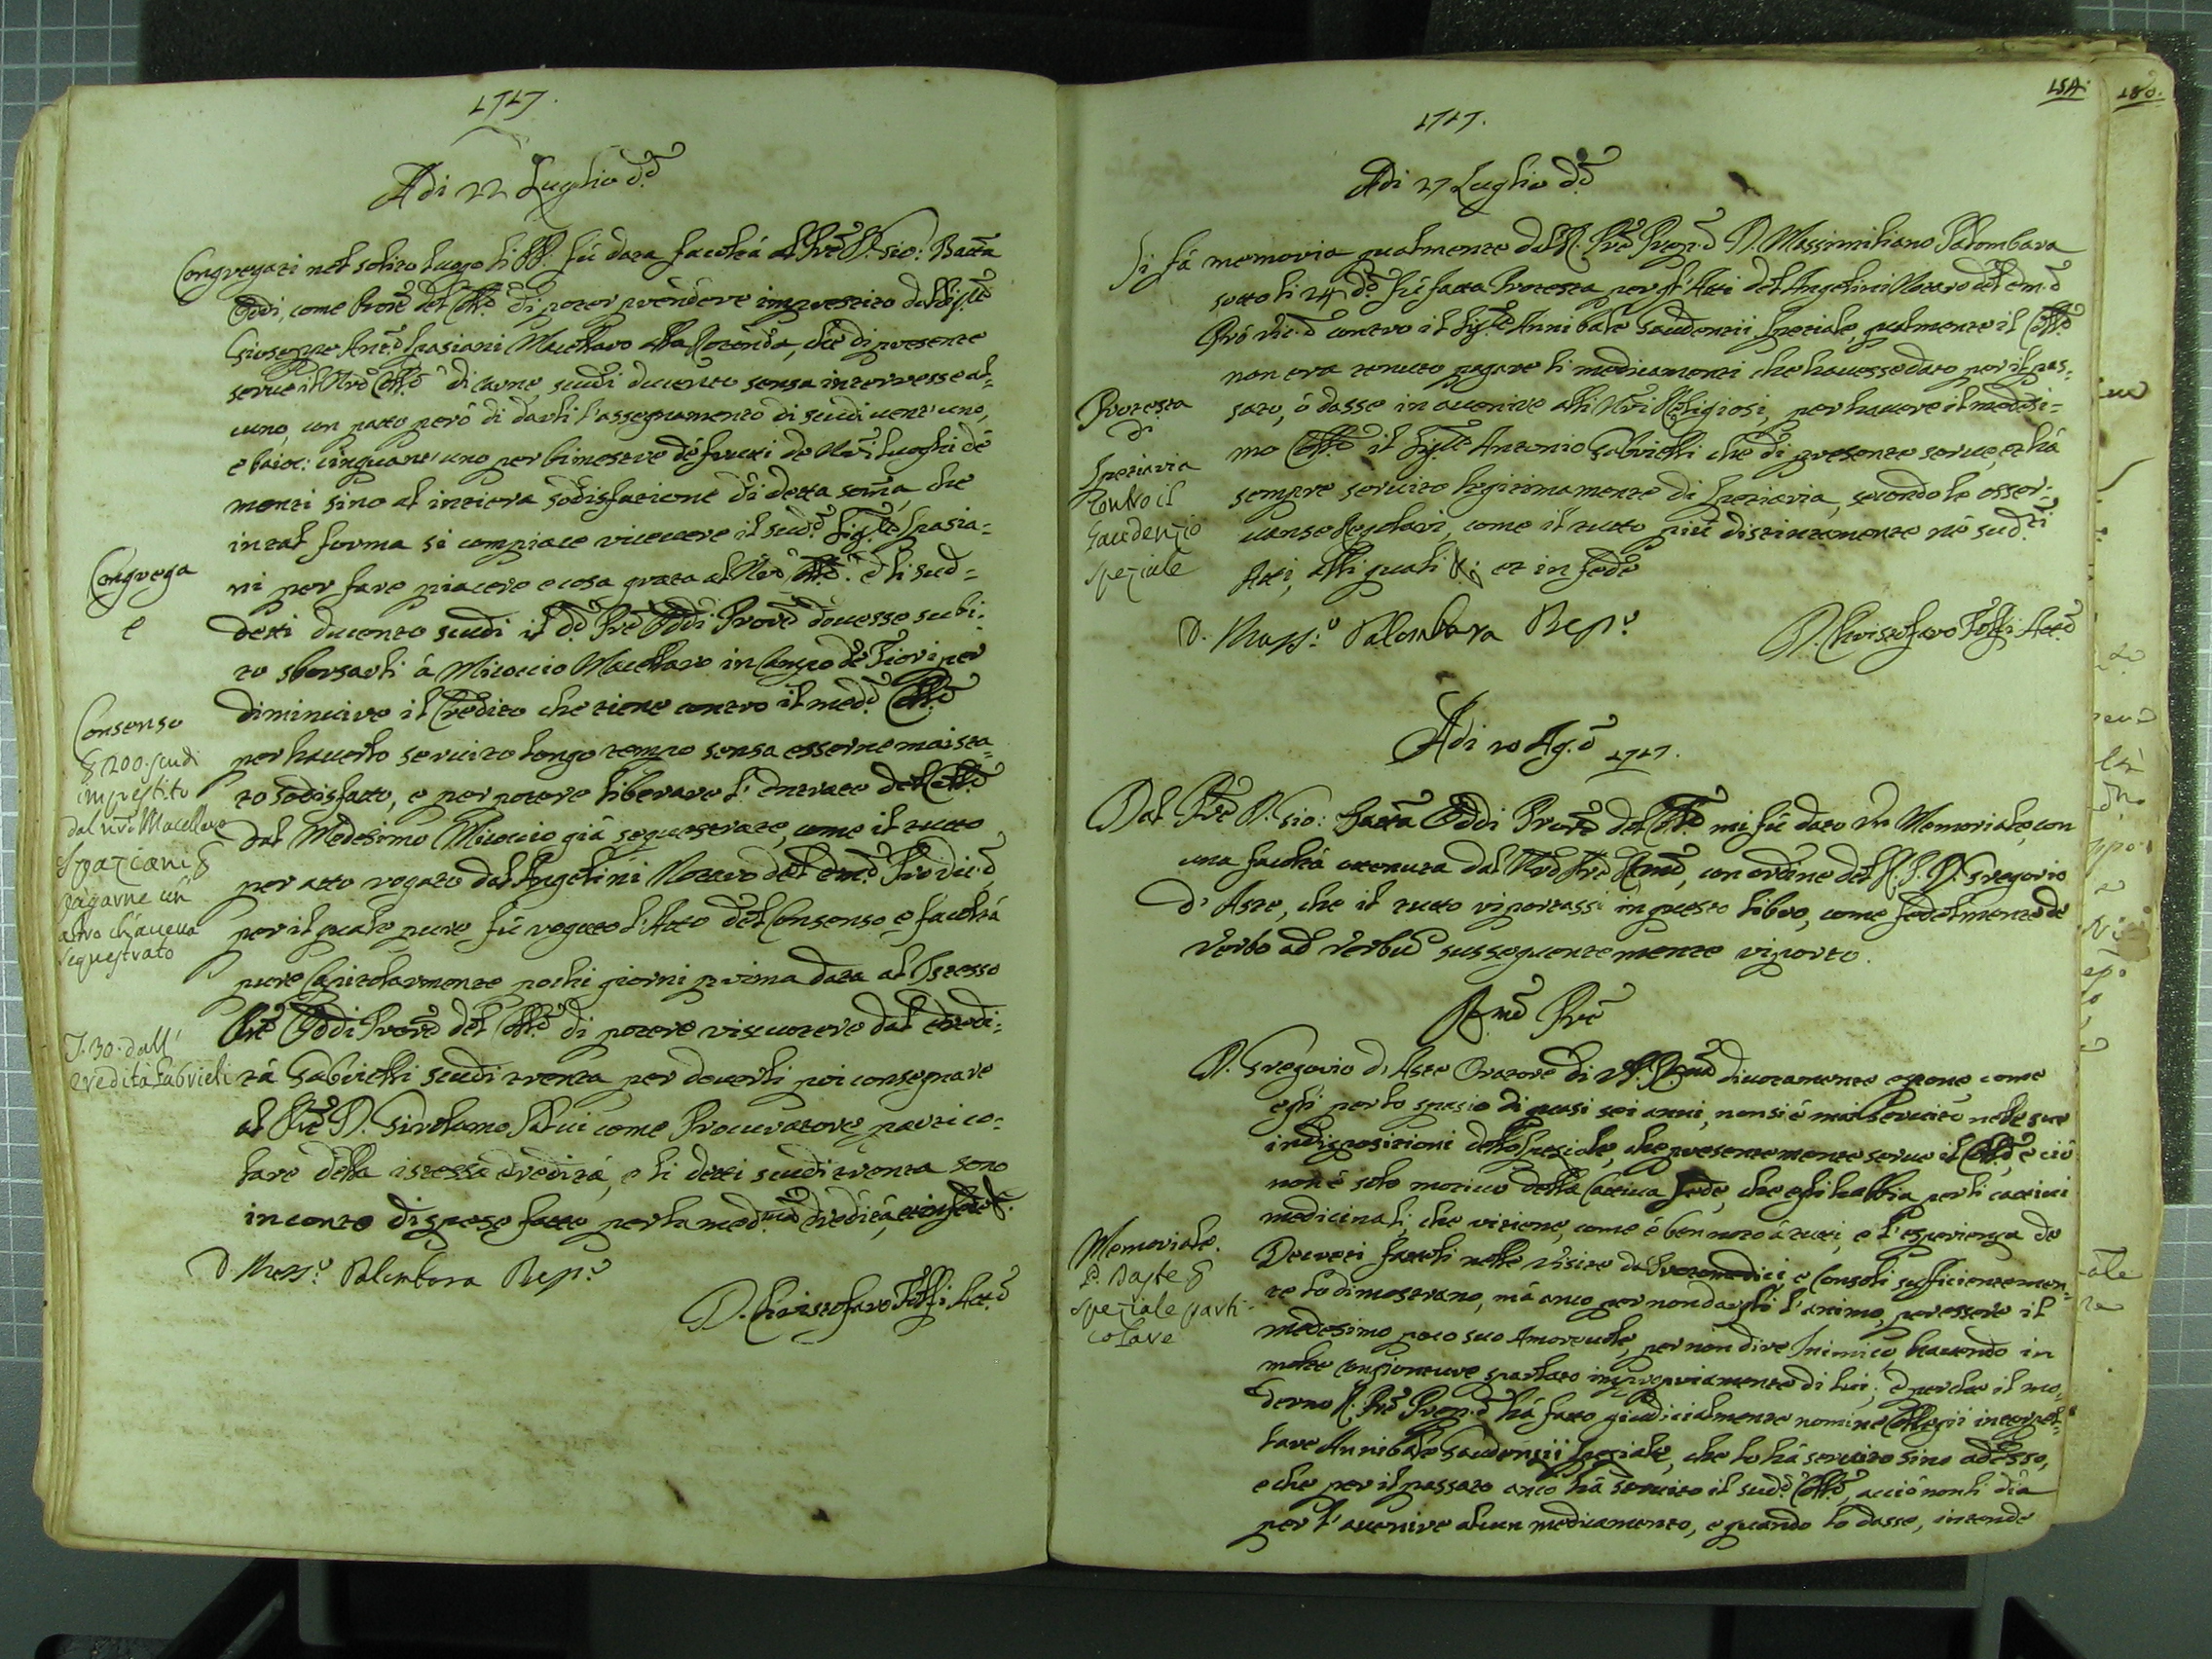 1717.
Adi 22 Luglio d.º
Congregati nel solito luogo li PP. fù data facoltà al Prē D. Gio: Batta
Oddi, come Provre del Collº di poter prendere imprestito dalli
Giuseppe Antº Spasiani Macellaro alla Rotonda, che di presente
serve il Nrō Collº di carne, scudi ducento senza interresse al-
cuno, con patto però di darli l'assegnamento di scudi vent'uno,
e baioc: cinquant'uno per bimestre dè frutti de Nrī Luoghi dè
monti sino al intiera sodisfatione di detta somā, che
in tal forma si compiace ricevere il sudº Sigre Spasia-
ni per fare piacere e cosa grata al Nrō Collº. E li sud-
detti ducento scudi il dº Prē Oddi Provre dovesse subi-
to sborsarli à Micoccio Macellaro in Campo de Fiori per
diminuire il Credito che tiene contro il medº Collº
per haverlo servito longo tempo senza esserne mai sta-
to sodisfatto, e per potere liberare l'Entrate del Collº
dal Medesimo Micoccio già sequestrate, come il tutto
per atto rogato dal Angelini Notaro del Emº Provic.º
per il quale pure fù rogato l'Atto del Consenso e facoltà
pure Capitolarmente pochi giorni prima data al Istesso
Prē Oddi Provre del Collº di potere riscuotere dal Eredi-
tà Gabrielli scudi trenta per doverli poi consegnare
al Prē D. Girolamo Salvi come Procuratore partico-
lare della istessa eredità, e li detti scudi trenta sono
in conto di spese fatte per la medma Eredità, et in fede &.
D. Massº. Palombara Repº.
D. Christofaro Toffi Attº
Congrega
e
Consenso
& 200. scudi
imprestito
dal nrō Macellaro
Spaziani &
pagarne un
altro ch'aveva
sequestrato
S. 30. dall'
eredità Gabrieli
154.
180.
1717.
Adi 27 Luglio d.º
Si fà memoria qualmente dal R. Prē Prep.º D. Massimiliano Palombara
sotto li 24 dº fù fatta Protesta per gl'Atti del Angelini Notaro del Em.º
Pró Vic.º contro il Sigre Annibale Gaudentii Speziale, qualmente il Collº
non era tenuto pagare li medicamenti che havesse dato per il pas-
sato, ò dasse in avenire alli Nrī Religiosi, per havere il medesi-
mo Collº il Sigre Antonio Gabrielli che di presente serve, et hà
sempre servito legitimamente di Spetiaria, secondo le osser-
vanse Regolari, come il tutto più distintamente nè sudti
Atti, alli quali &; et in fede
D. Massº. Palombara Repº.
D. Christofaro Toffi Attº
Protesta
di
Spetiaria
contro il
Gaudenzio
speziale
Adi 10 Ag.º 1717.
Dal Prē D. Gio: Batta Oddi Provre del Collº mi fù dato un Memoriale, con
una facoltà ottenuta dal Nrō Prē Rmō, con ordine del R. P. D. Gregorio
d'Aste, che il tutto riportassi in questo libro, come fedelmente de
Verbo ad Verbū susseguentemente riporto.
Rmō Prē
D. Gregorio d'Aste Oratore di V. P. Rma divotamente espone come
egli per lo spasio di quasi sei anni, non si è mai servito nelle sue
indispositioni dello Speziale, che presentemente serve il Collº, e ciò
non è solo motivo della Cattiva fede, che egli habbia per li cattivi
medicinali, che ritiene, come è ben noto à tutti, e l'esperienza de
Decreti fattoli nelle Visite da Protomedici, e Consoli sufficientemen-
te lo dimostrano, mà anco per non dargli l'animo, per essere il
medesimo poco suo Amorevole, per non dire Inimico, havendo in
molte congionture sparlato impropriamente di lui; e perche il mo-
derno R. Prē Prep.º hà fatto giudicialmente nomine Collegii interpel-
lare Annibale Gaudenzii Speziale, che lo hà servito sino adesso,
e che per il passato anco hà servito il sudº Collº, acciò non li dia
per l'avenire alcun medicamento, e quando lo dasse, intende
Memoriale.
P. Daste &
speziale parti-
colare